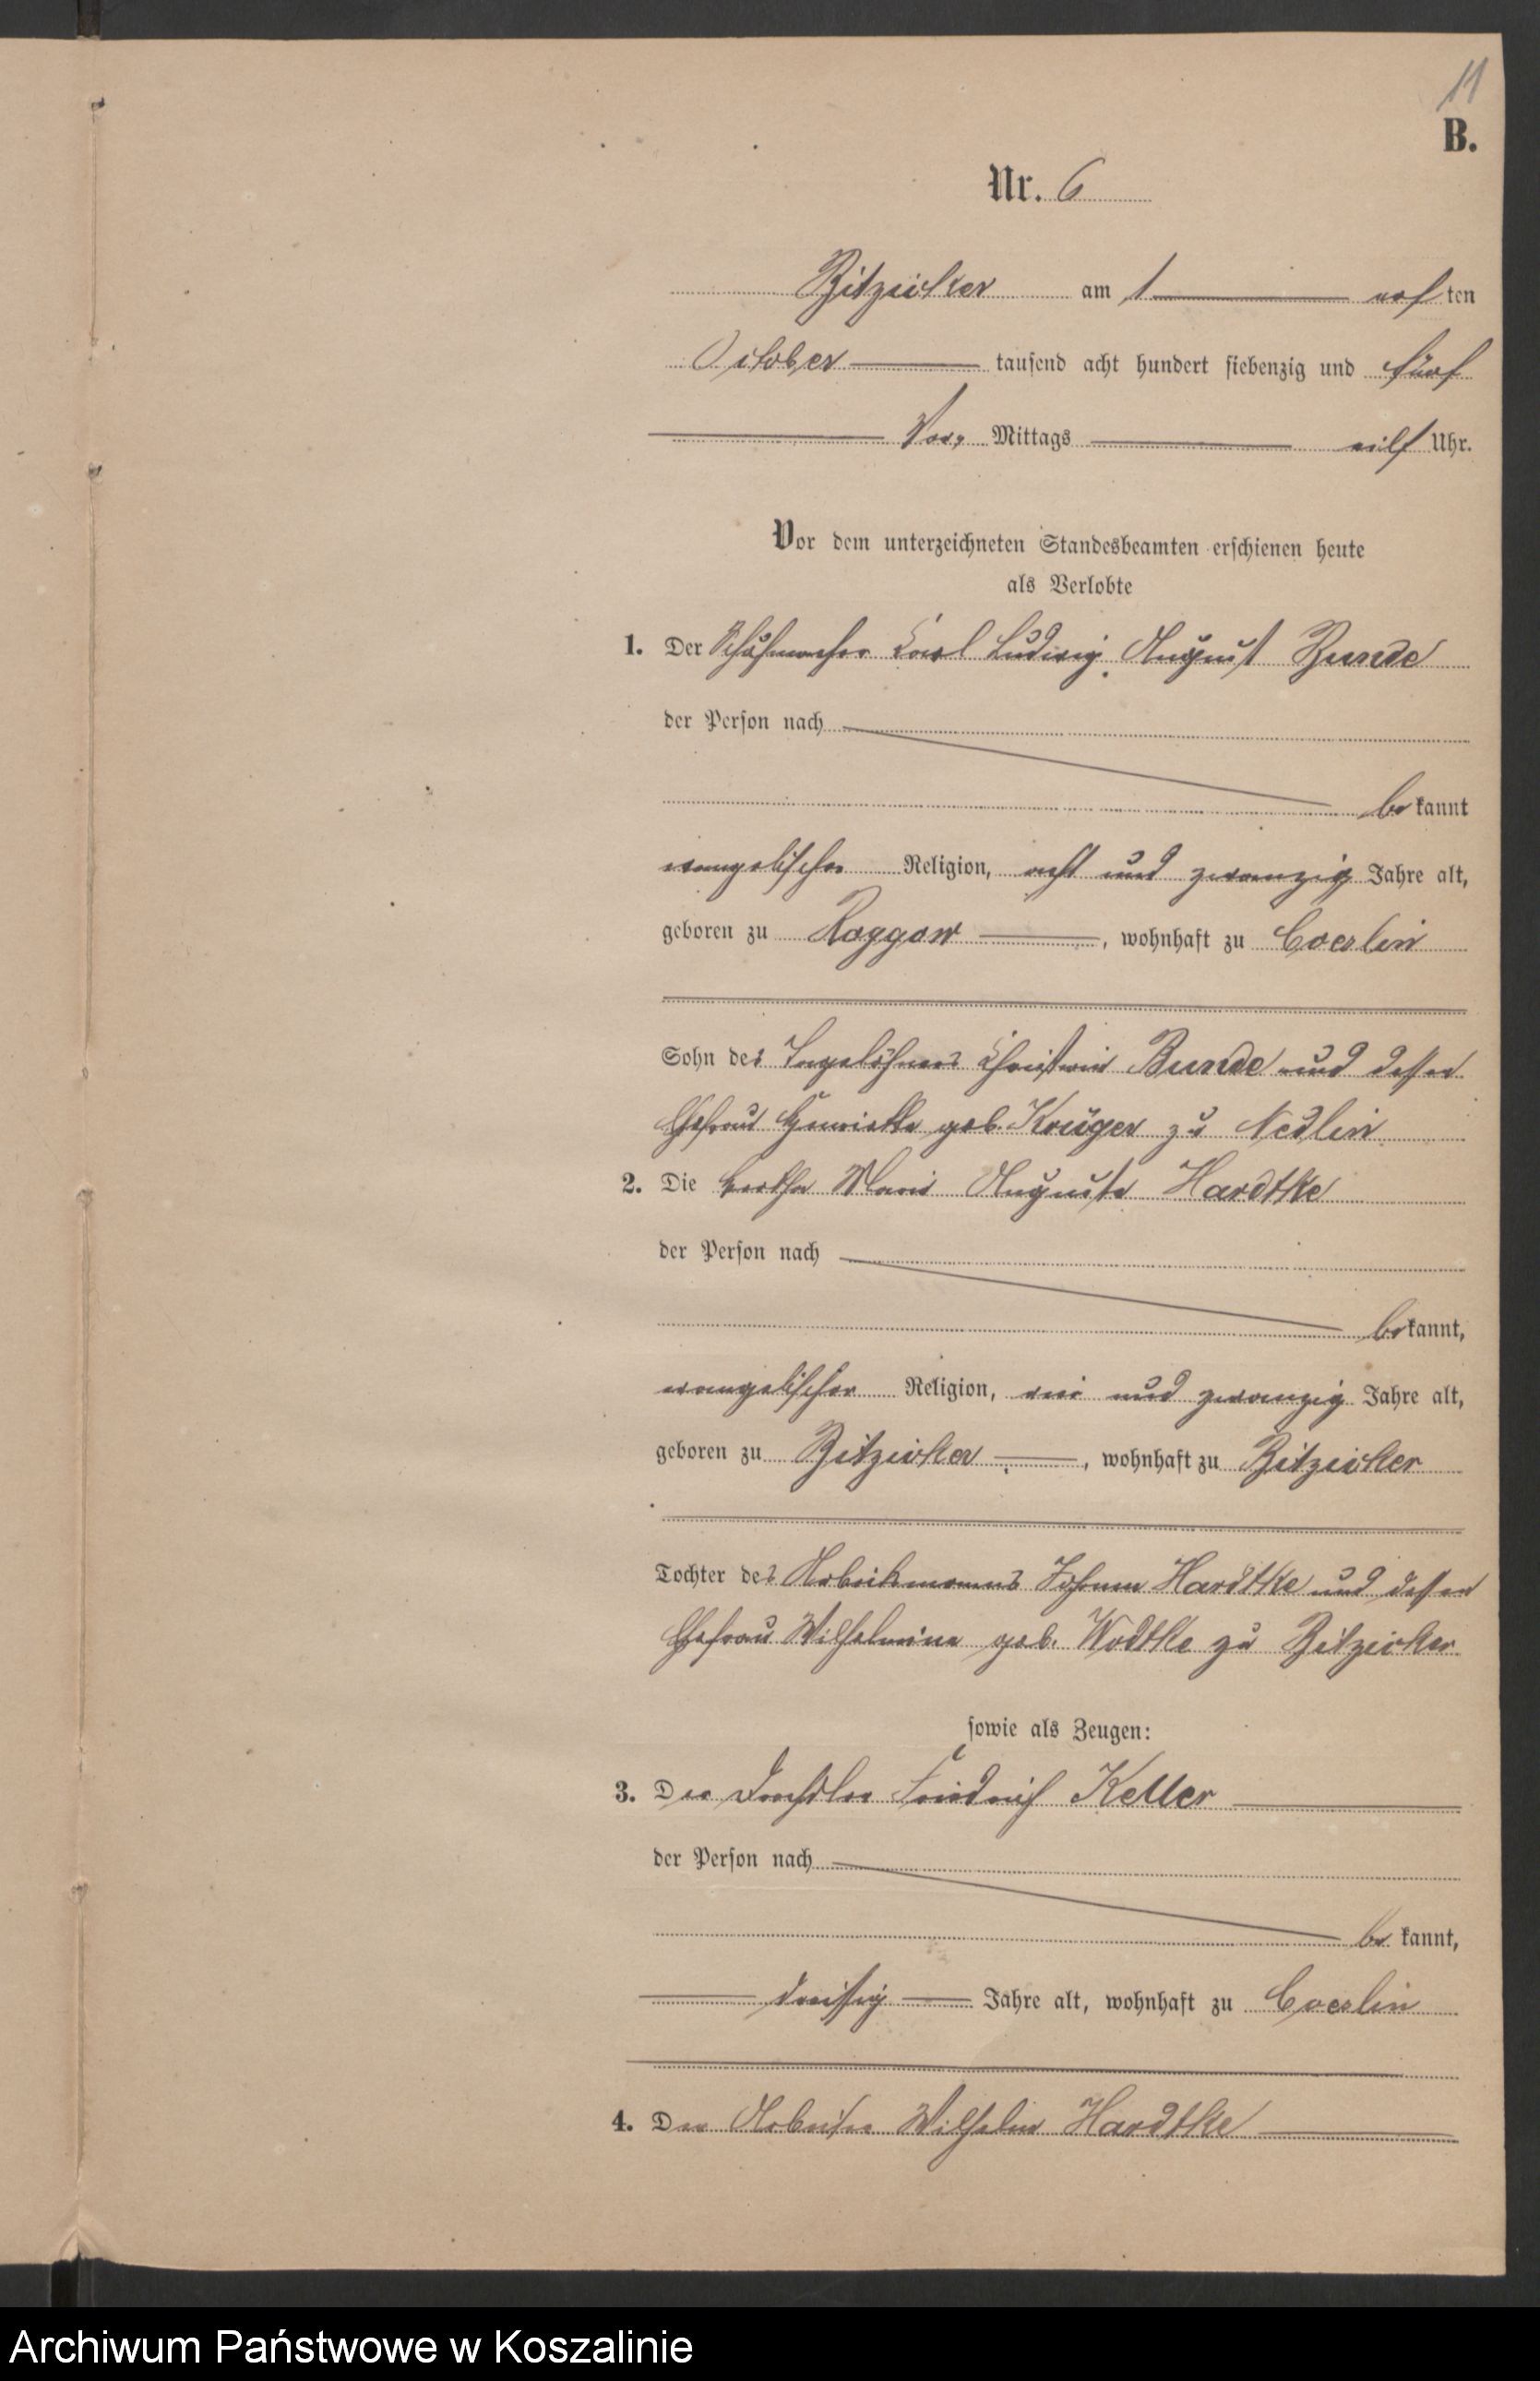 11
B.
Nr. 6
Bitzicker am 1 ten
October tausend acht hundert siebenzig und fünf
Vor Mittags eilf Uhr.
Vor dem unterzeichneten Standesbeamten erschienen heute
als Verlobte
1. Der Schuhmacher Carl Ludwig August Bunde
der Person nach
be kannt
evangelischer Religion, acht und zwanzig Jahre alt,
geboren zu Roggow, wohnhaft zu Coerlin
Sohn des Tagelöhners Christian Bunde und dessen
Ehefrau Henriette geb. Krüger zu Nedlin
2. Die Bertha Marie Auguste Hardtke
der Person nach
be kannt,
evangelischer Religion, und zwanzig Jahre alt,
geboren zu Bitzicker, wohnhaft zu Bitzicker
Tochter des Arbeitsmanns Johann Hardtke und dessen
Ehefrau Wilhelmine geb. Wodtke zu Bitzicker
sowie als Zeugen:
3. Der Friedrich Keller
der Person nach
be kannt,
dreissig Jahre alt, wohnhaft zu Coerlin
4. Der Arbeiter Wilhelm Hardtke
Archiwum Państwowe w Koszalinie